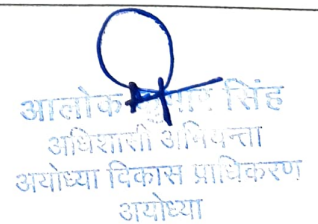 आलोक कुमार सिंह
अधिशासी अभियन्ता
अयोध्या विकास प्राधिकरण
अयोध्या